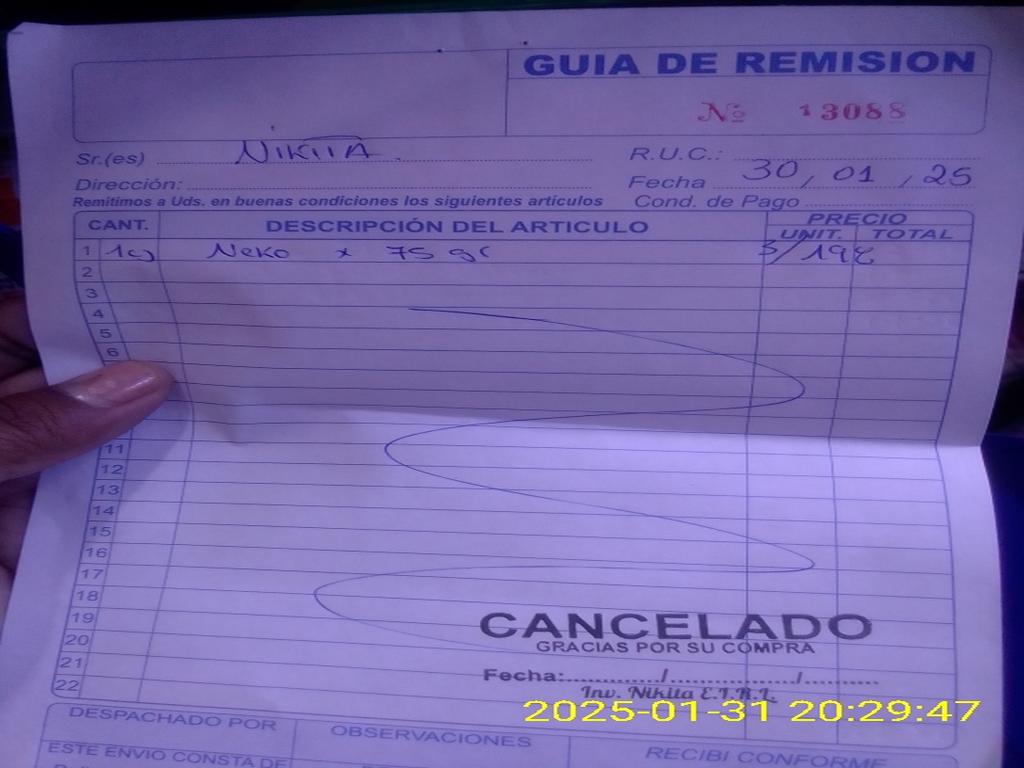 GUIA DE REMISION
Nº 13088
Sr.(es) NIKITA
R.U.C.:
Dirección:
Fecha 30, 01, 25
Remitimos a Uds. en buenas condiciones los siguientes artículos
Cond. de Pago
CANT. DESCRIPCIÓN DEL ARTICULO PRECIO
UNIT. TOTAL
1 Neko x 75 gr
2
3
4
5
6
11
12
13
14
15
16
17
18
19
20
21
22
CANCELADO
GRACIAS POR SU COMPRA
Fecha:............/................/.........
Inv. Nikita E.I.R.L.
2025-01-31 20:29:47
DESPACHADO POR
OBSERVACIONES
RECIBI CONFORME
ESTE ENVIO CONSTA DE